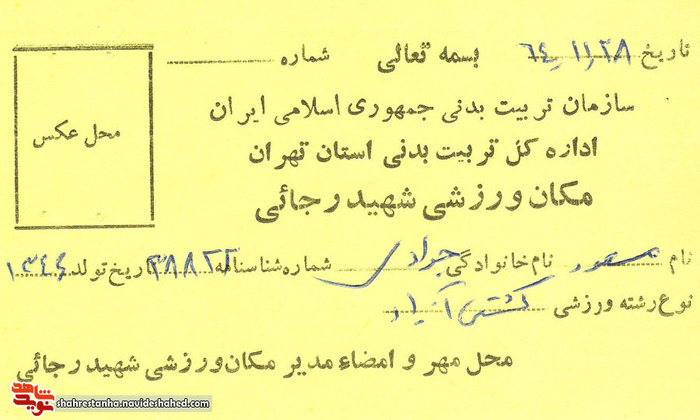 تاریخ ۶۴/۱۱/۲۸ بسمه تعالی شماره
سازمان تربیت بدنی جمهوری اسلامی ایران
اداره کل تربیت بدنی استان تهران
مکان ورزشی شهید رجائی
محل عکس
نام مسعود نام خانوادگی جوادی شماره شناسنامه تاریخ تولد ۱۳۴۴
نوع رشته ورزشی کشتی آزاد
محل مهر و امضاء مدیر مکان ورزشی شهید رجائی
نوید شاهد
shahrestanha.navideshahed.com